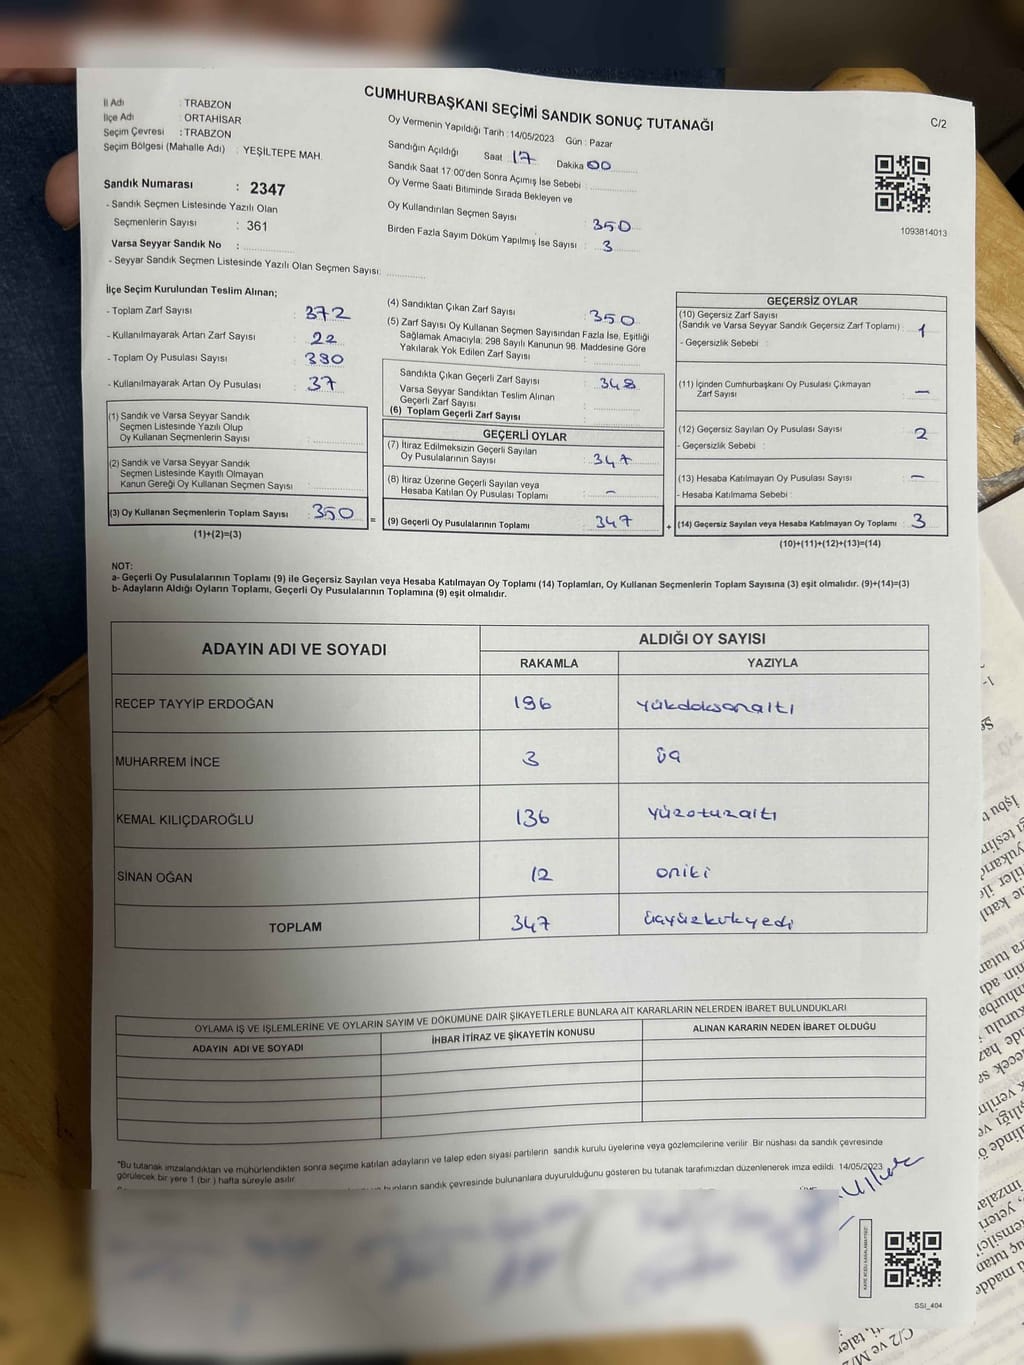 CUMHURBAŞKANI SEÇİMİ SANDIK SONUÇ TUTANAĞI
C/2
İl Adı : TRABZON
İlçe Adı : ORTAHİSAR
Seçim Çevresi : TRABZON
Seçim Bölgesi (Mahalle Adı) : YEŞİLTEPE MAH.
Sandık Numarası : 2347
- Sandık Seçmen Listesinde Yazılı Olan
Seçmenlerin Sayısı : 361
Varsa Seyyar Sandık No :
- Seyyar Sandık Seçmen Listesinde Yazılı Olan Seçmen Sayısı:
Oy Vermenin Yapıldığı Tarih : 14/05/2023 Gün : Pazar
Sandığın Açıldığı Saat 17 Dakika 00
Sandık Saat 17:00'den Sonra Açımış İse Sebebi :
Oy Verme Saati Bitiminde Sırada Bekleyen ve
Oy Kullandırılan Seçmen Sayısı 350
Birden Fazla Sayım Döküm Yapılmış İse Sayısı : 3
1093814013
İlçe Seçim Kurulundan Teslim Alınan;
- Toplam Zarf Sayısı : 372
- Kullanılmayarak Artan Zarf Sayısı : 22
- Toplam Oy Pusulası Sayısı : 380
- Kullanılmayarak Artan Oy Pusulası : 37
(1) Sandık ve Varsa Seyyar Sandık
Seçmen Listesinde Yazılı Olup
Oy Kullanan Seçmenlerin Sayısı :
(2) Sandık ve Varsa Seyyar Sandık
Seçmen Listesinde Kayıtlı Olmayan
Kanun Gereği Oy Kullanan Seçmen Sayısı :
(3) Oy Kullanan Seçmenlerin Toplam Sayısı : 350
(1)+(2)=(3)
=
(4) Sandıktan Çıkan Zarf Sayısı : 350
(5) Zarf Sayısı Oy Kullanan Seçmen Sayısından Fazla İse, Eşitliği
Sağlamak Amacıyla; 298 Sayılı Kanunun 98. Maddesine Göre
Yakılarak Yok Edilen Zarf Sayısı :
Sandıkta Çıkan Geçerli Zarf Sayısı : 348
Varsa Seyyar Sandıktan Teslim Alınan
Geçerli Zarf Sayısı :
(6) Toplam Geçerli Zarf Sayısı :
GEÇERLİ OYLAR
(7) İtiraz Edilmeksizin Geçerli Sayılan
Oy Pusulalarının Sayısı : 347
(8) İtiraz Üzerine Geçerli Sayılan veya
Hesaba Katılan Oy Pusulası Toplamı : –
(9) Geçerli Oy Pusulalarının Toplamı : 347
+
GEÇERSİZ OYLAR
(10) Geçersiz Zarf Sayısı
(Sandık ve Varsa Seyyar Sandık Geçersiz Zarf Toplamı) : 1
- Geçersizlik Sebebi :
(11) İçinden Cumhurbaşkanı Oy Pusulası Çıkmayan
Zarf Sayısı : –
(12) Geçersiz Sayılan Oy Pusulası Sayısı : 2
- Geçersizlik Sebebi :
(13) Hesaba Katılmayan Oy Pusulası Sayısı : –
- Hesaba Katılmama Sebebi :
(14) Geçersiz Sayılan veya Hesaba Katılmayan Oy Toplamı : 3
(10)+(11)+(12)+(13)=(14)
NOT:
a- Geçerli Oy Pusulalarının Toplamı (9) ile Geçersiz Sayılan veya Hesaba Katılmayan Oy Toplamı (14) Toplamları, Oy Kullanan Seçmenlerin Toplam Sayısına (3) eşit olmalıdır. (9)+(14)=(3)
b- Adayların Aldığı Oyların Toplamı, Geçerli Oy Pusulalarının Toplamına (9) eşit olmalıdır.
ADAYIN ADI VE SOYADI
ALDIĞI OY SAYISI
RAKAMLA YAZIYLA
RECEP TAYYİP ERDOĞAN 196 yükdoksanaltı
MUHARREM İNCE 3 üç
KEMAL KILIÇDAROĞLU 136 yüzotuzaltı
SİNAN OĞAN 12 oniki
TOPLAM 347 üçyüzkırkyedi
OYLAMA İŞ VE İŞLEMLERİNE VE OYLARIN SAYIM VE DÖKÜMÜNE DAİR ŞİKAYETLERLE BUNLARA AİT KARARLARIN NELERDEN İBARET BULUNDUKLARI
ADAYIN ADI VE SOYADI İHBAR İTİRAZ VE ŞİKAYETİN KONUSU ALINAN KARARIN NEDEN İBARET OLDUĞU
*Bu tutanak imzalandıktan ve mühürlendikten sonra seçime katılan adayların ve talep eden siyasi partilerin sandık kurulu üyelerine veya gözlemcilerine verilir. Bir nüshası da sandık çevresinde
görülecek bir yere 1 (bir ) hafta süreyle asılır
bunların sandık çevresinde bulunanlara duyurulduğunu gösteren bu tutanak tarafımızdan düzenlenerek imza edildi. 14/05/2023
SSI_404